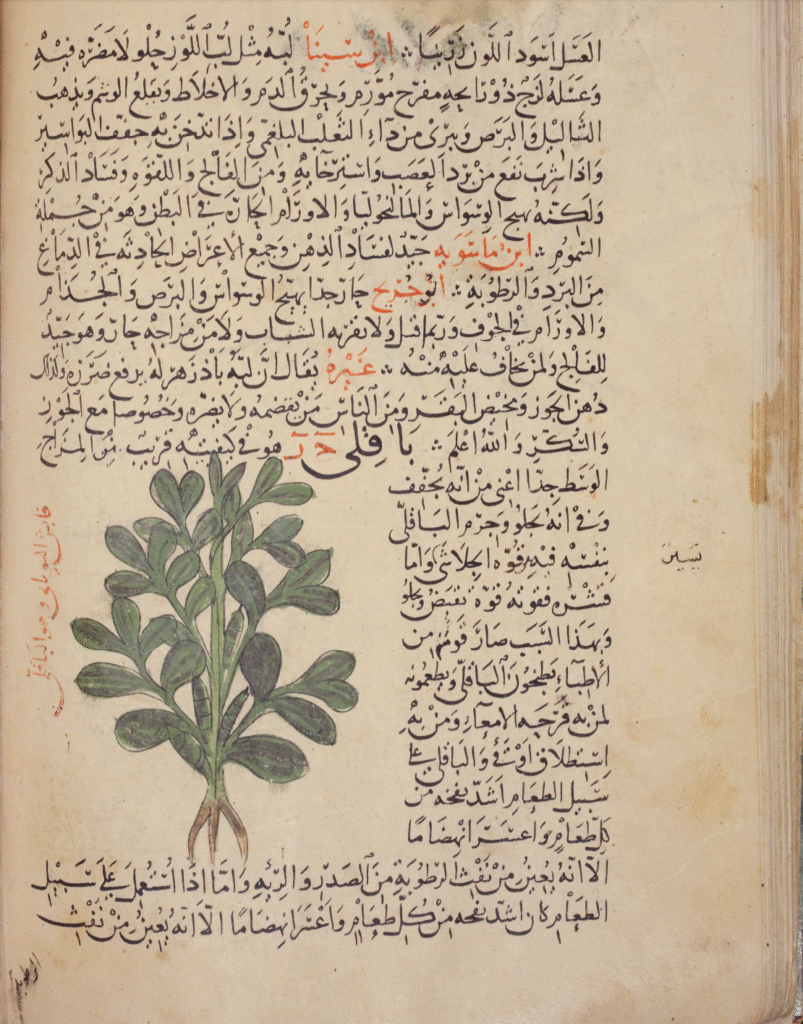 العسل اسود اللون رزينا ابن سينا لبه مثل لب اللوز حلو لا مضرة فيه
وعسله لزج ذو رايحه مقرح مورم ويحرق الدم والاخلاط ويقلع الوشم ويذهب
الثاليل والبرص ويبرئ من داء الثعلب البلغمي واذا تدخن به جفف البواسير
واذا شرب نفع من برد العصب واسترخايه ومن الفالج واللقوه وفساد الذكر
ولكنه يهيج الوسواس والمالنخوليا والاورام الحارة في البطن وهو من جملة
السموم ابن ماسويه جيد لفساد الذهن وجميع الاعراض الحادثه في الدماغ
من البرد والرطوبة ابو جريج حار جدا يهيج الوسواس والبرص والجذام
والاورام في الجوف وربما قتل ولا تقربه الشباب ولا من مزاجه حار وهو جيد
للفالج ولمن يخاف عليه منه غيره يقال ان لبه باذزهر له يرفع ضرره وكذلك
دهن الجوز ومخيض البقر ومن الناس من يقضمه ولا يضره وخصوصا مع الجوز
والسكر والله اعلم باقلى هو في كيفيته قريب من المزاج
الوسط جدا اعني من انه يجفف
وفي انه يجلو وجرم الباقلى
بنفسه فيه قوة الجلاشي واما
قشره فقوته قوة تقبض ويجلو
وبهذا السبب صار قوم من
الاطباء يطبخون الباقلى ويطعمونه
لمن به قرحه الامعاء ومن به
استطلاق او قي والباقلى على
سبيل الطعام اشد نفخه من
كل طعام واعسر انهضاما
الا انه يعين من نفث الرطوبة من الصدر والرئه واما اذا استعمل على سبيل
الطعام كان اشد نفخه من كل طعام واعسر انهضاما الا انه يعين من نفث
الرطوبة